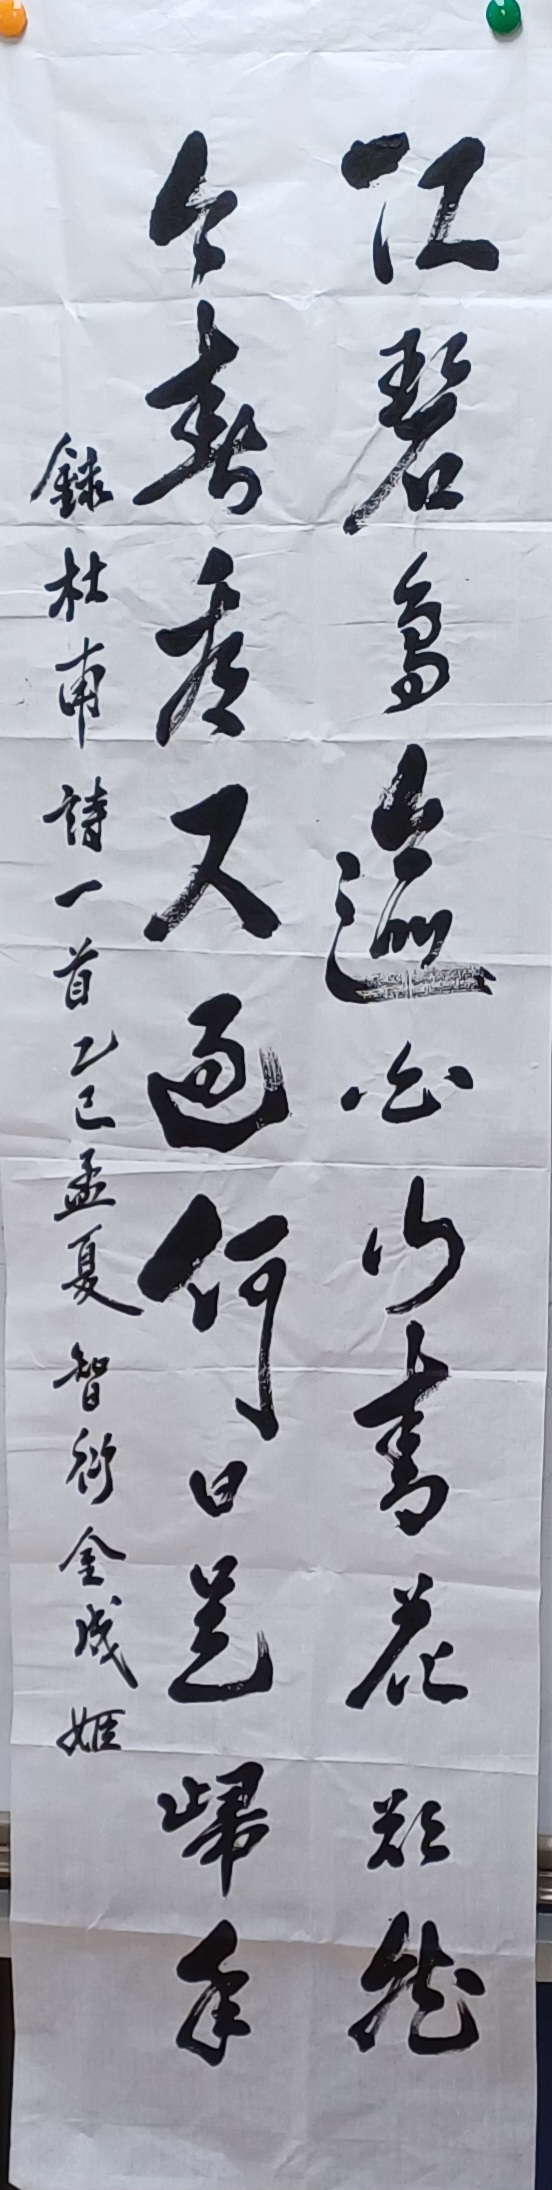 江碧鳥逾白山青花欲然
今春看又過何日是歸年
錄杜甫詩一首乙巳孟夏智衍金成姬